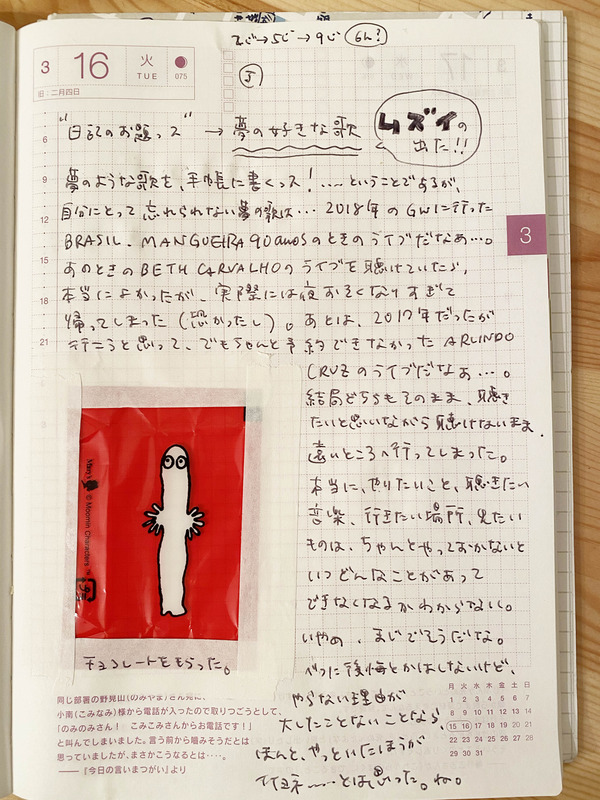 2じ→5じ→9じ 6h?
3
16
火
TUE
075
旧:二月四日
5
"日記のお題っス" → 夢の好きな歌
ムズイの
出た!!
6
9
12
15
18
21
3
夢のような歌を、手帳に書くっス!……ということであるが、
自分にとって忘れられない夢の歌は…2018年のGWに行った
BRASIL. MANGUEIRA 90 anosのときのライブだなぁ…。
あのときのBETH CARVALHOのライブを聴けていたら、
本当によかったが、実際には夜おそくなりすぎて
帰ってしまった(恐かったし)。あとは、2017年だったが
行こうと思って、でもちゃんと予約できなかった ARLINDO
CRUZのライブだなぁ…。
結局どちらもそのまま、聴き
たいと思いながら聴けないまま、
遠いところへ行ってしまった。
本当に、やりたいこと、聴きたい
音楽、行きたい場所、見たい
ものは、ちゃんとやっておかないと
いつどんなことがあって
できなくなるかわからない。
いやぁ、まじでそうだな。
べつに後悔とかはしないけど、
やらない理由が
大したことないことなら、
ほんと、やっといたほうが
© Moomin Characters ™
チョコレートをもらった。
同じ部署の野見山(のみやま)さん宛に、
小南(こみなみ)様から電話が入ったので取りつごうとして、
「のみのみさん! こみこみさんからお電話です!」
と叫んでしまいました。言う前から噛みそうだとは
思っていましたが、まさかこうなるとは‥‥。
――『今日の言いまつがい』より
月 火 水 木 金 土 日
1 2 3 4 5 6 7
8 9 10 11 12 13 14
15 16 17 18 19 20 21
22 23 24 25 26 27 28
29 30 31